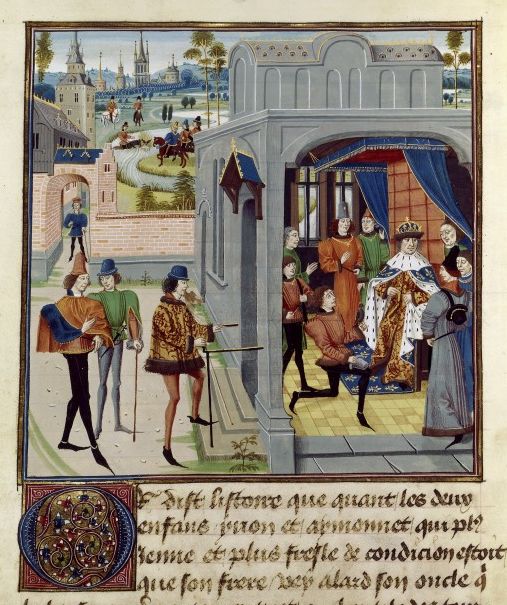 Or dist listoire que quant les deux
enfans yuon et aymonnet qui plus
ieune et plus fresle de condicion estoit
que son frere vey alard son oncle